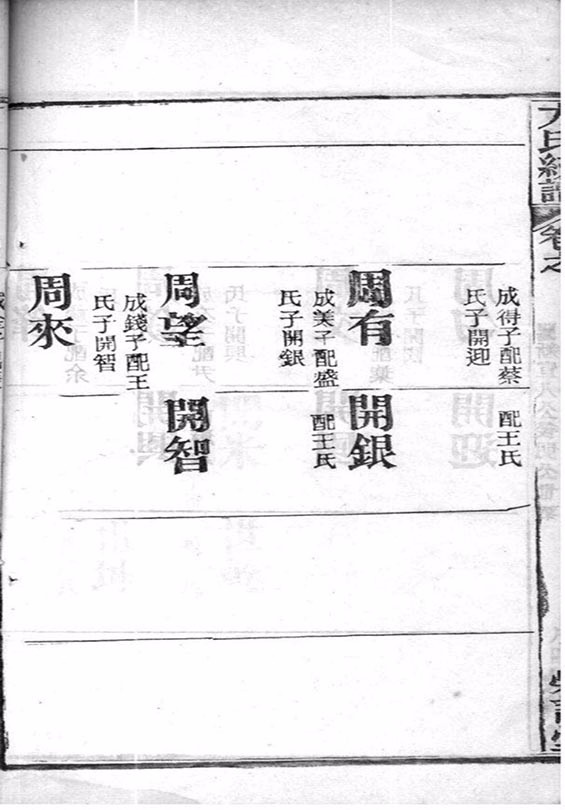 卷之
成得子配蔡
氏子開迎
周有
成美子配盛
氏子開銀
周望
成錢子配王
氏子開智
周來
配王氏
開銀
配王氏
開智